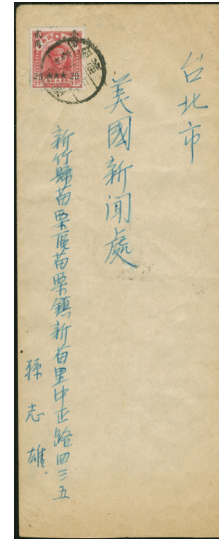 台北市
美國新闻處
新竹縣苗栗區苗栗鎮新苗里中正路四三五
孫志雄